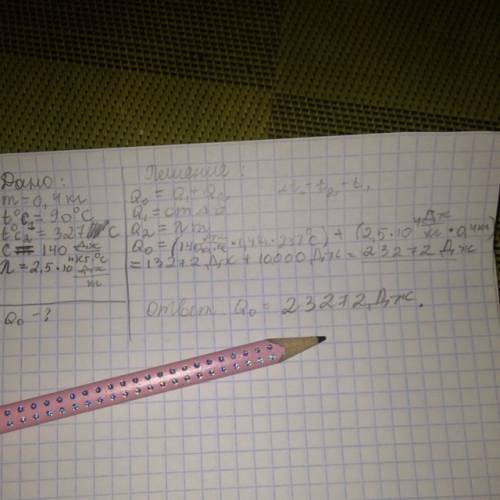 Дано:
m = 0,4 кг
t°C₁ = 90°C
t°C₂ = 327 °C
C = 140 Дж/кг·°C
λ = 2,5·10⁴ Дж/кг
Q₀ - ?
Решение:
Q₀ = Q₁ + Q₂
Δt = t₂ - t₁
Q₁ = cmΔt
Q₂ = λm
Q₀ = (140 · 0,4кг · 237°C) + (2,5·10⁴ Дж/кг · 0,4кг)
= 13272 Дж + 10000 Дж = 23272 Дж
Ответ: Q₀ = 23272 Дж.